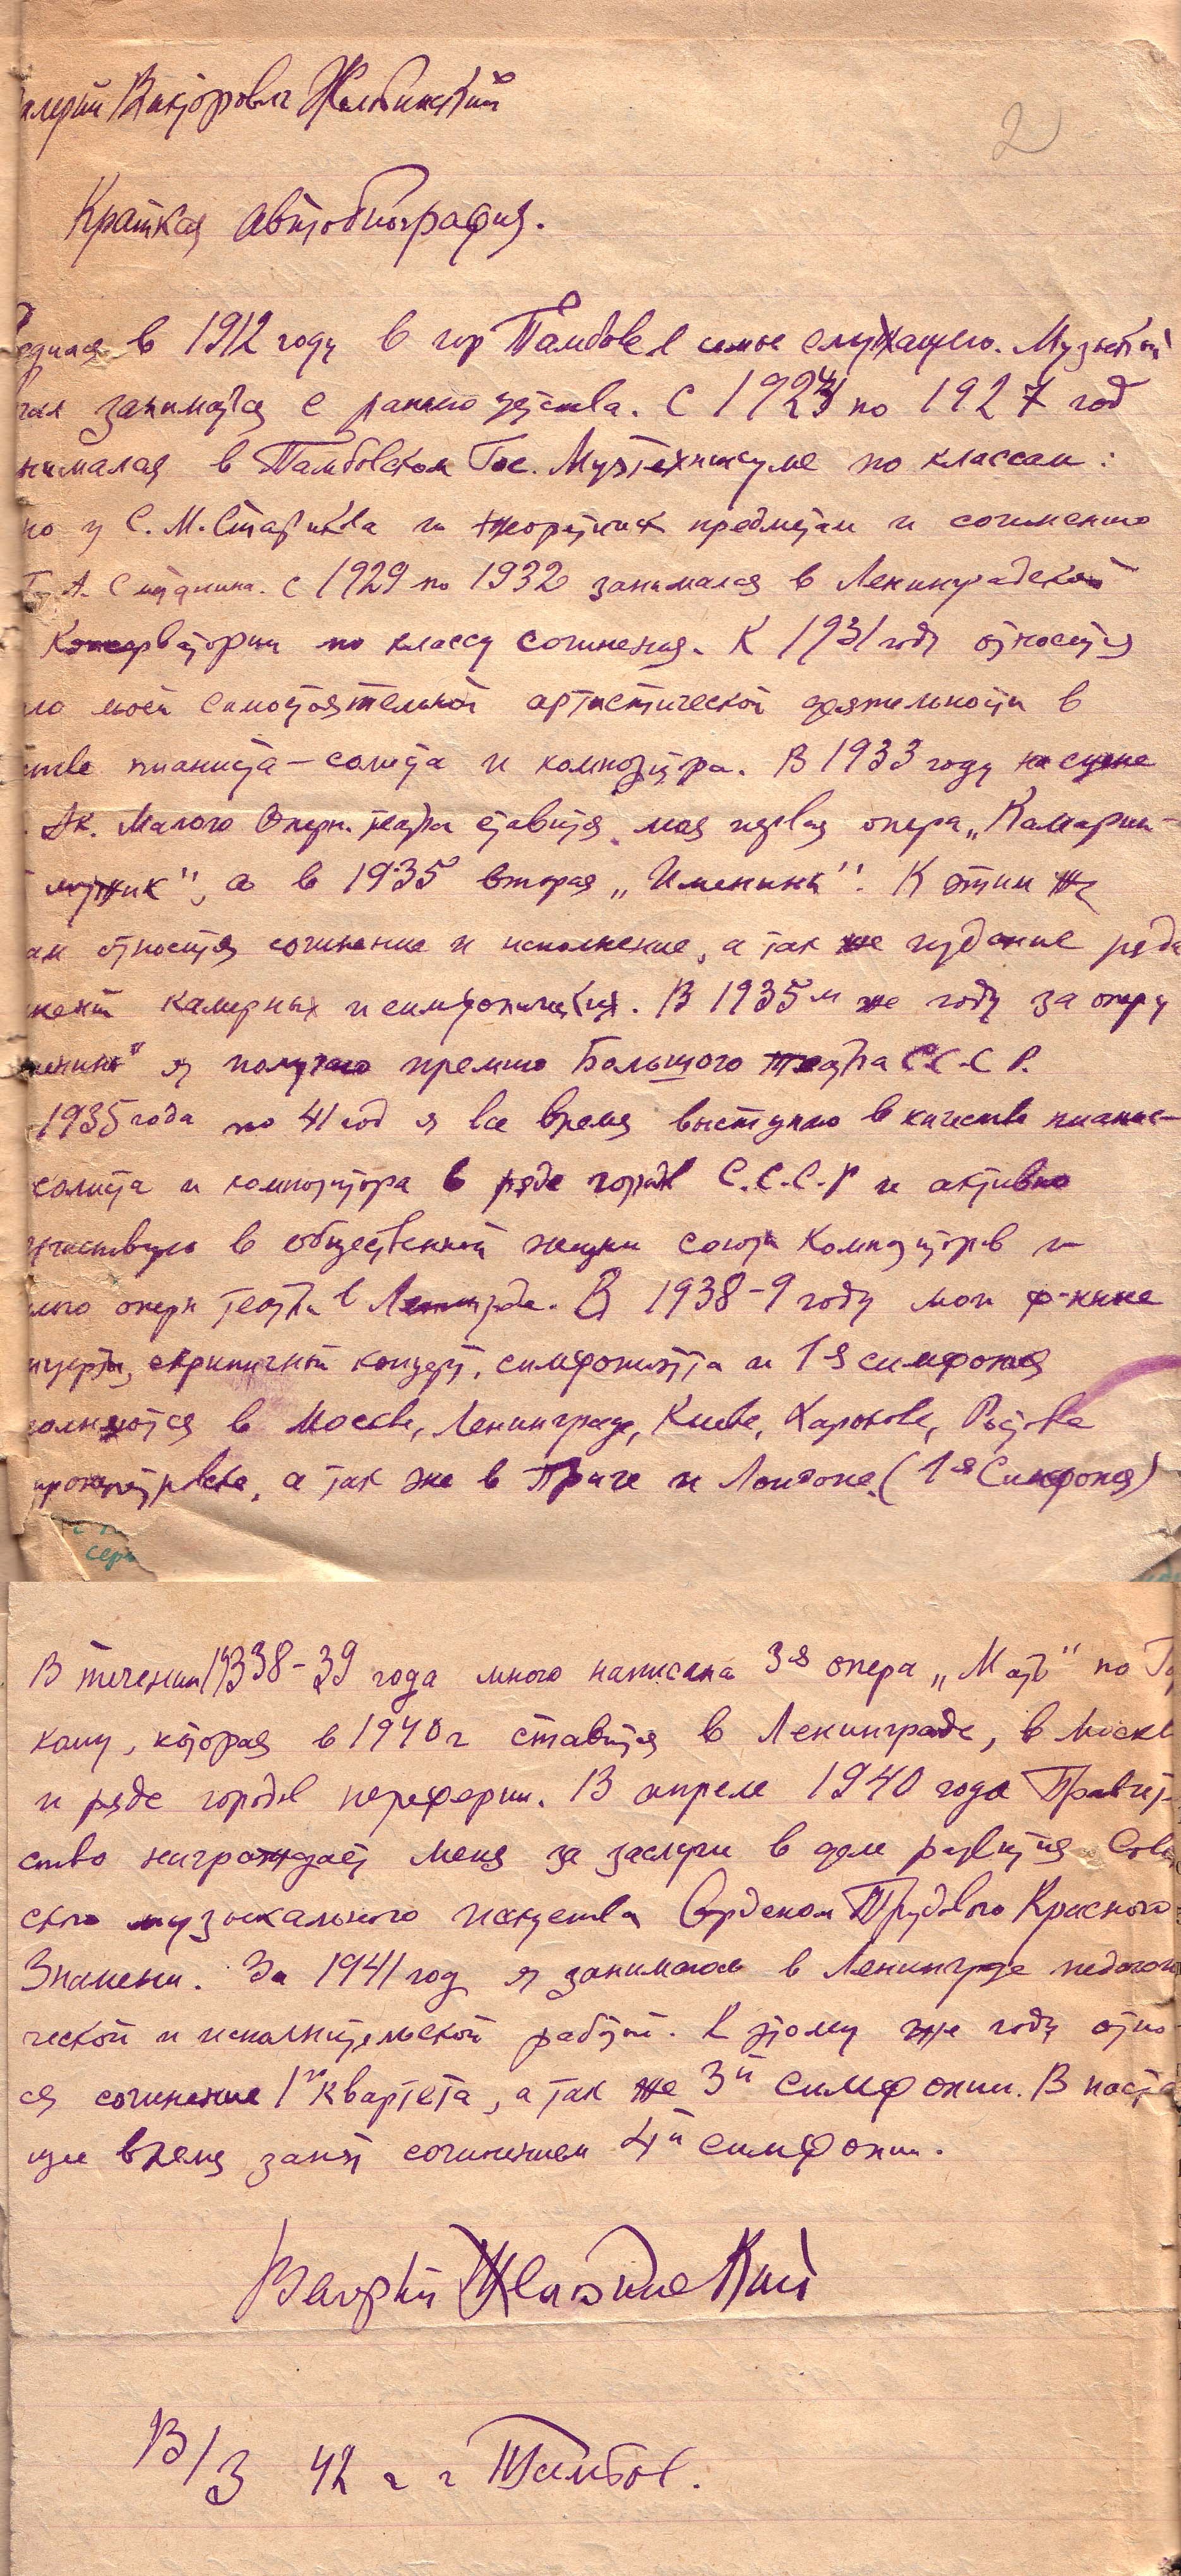 алерий Викторович Желобинский
2
Краткая автобиография.
одился в 1912 году в гор Тамбове в семье служащего. Музыкой
чал заниматся с раннего детства. С 1924 по 1927 год
нимался в Тамбовском Гос. Музтехникуме по классам:
но у С. М. Старикова и теоретич предметам и сочинению
А. с 1929 по 1932 занимался в Ленинградской
Консерватории по классу сочинения. К 1931 году относится
ло моей самостоятельной артистической деятельности в
стве пианиста-солиста и композитора. В 1933 году на сцене
Ак. Малого Оперн. театра ставится моя первая опера „Камарин-
мужик", а в 1935 вторая „Именины". К этим же
ам относится сочинение и исполнение, а так же издание ряда
нений камерных и симфонических. В 1935м же году за оперу
менины" я получаю премию Большого театра С.С.С.Р.
1935 года по 41 год я все время выступаю в качестве пианис-
солиста и композитора в ряде городов С.С.С.Р и активно
участвую в общественной жизни союза Композиторов и
лого оперн театра в Ленинграде. В 1938-9 году мои ф-нные
нцерты, скрипичный концерт, симфониэтта и 1я симфония
полняются в Москве, Ленинграде, Киеве, Харькове, Ростове
пропетровске, а так же в Праге и Лондоне. (1-я Симфония)
серь
В течении 1938-39 года мною написана 3я опера „Мать" по Го
кому, которая в 1940 г ставится в Ленинграде, в Москв
и ряде городов переферии. В апреле 1940 года Правит-
ство награждает меня за заслуги в деле развития Сове
ского музыкального искусства Орденом Трудового Красного
Знамени. За 1941 год я занимаюсь в Ленинграде педагоги
ческой и исполнительской работой. К этому же году отно
ся сочинение 1го Квартета, а так же 3й симфонии. В настоя
щее время занят сочинением 4й симфонии.
Валерий Желобинский
13/3 42 г г Тамбов.